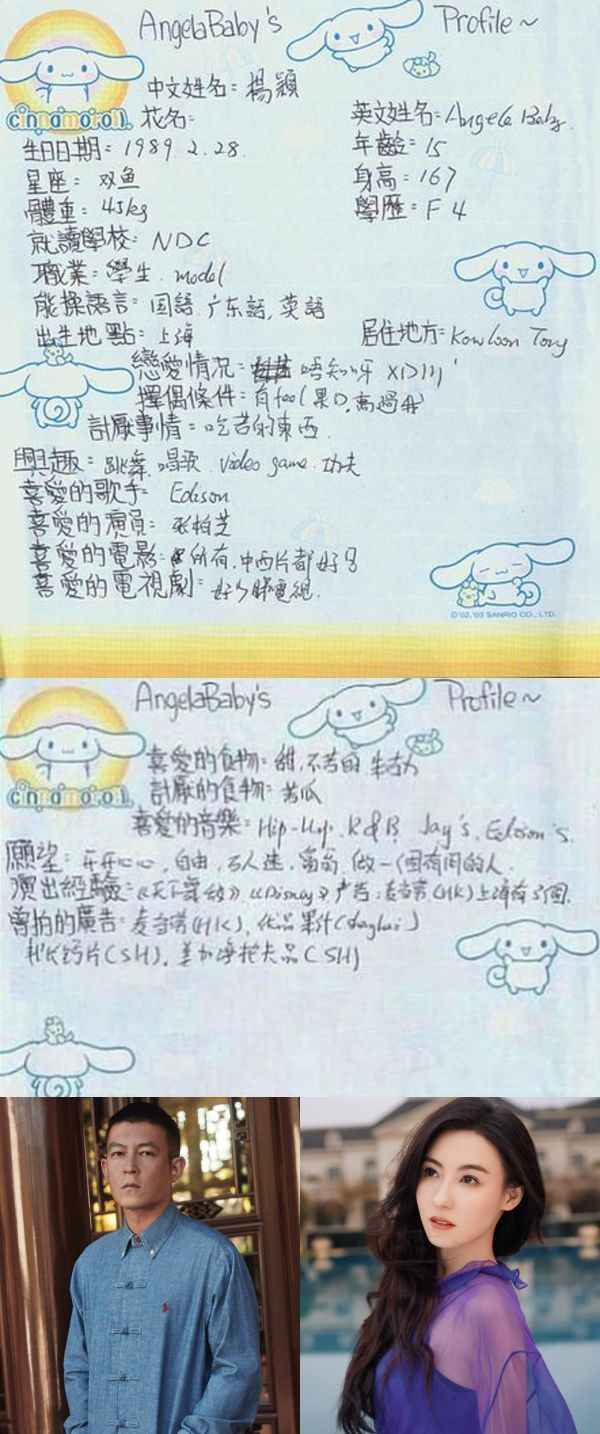 AngelaBaby's Profile~
中文姓名：楊穎
cinnamoroll 花名： 英文姓名：Angela Baby.
生日日期：1989.2.28. 年齡：15
星座：双鱼 身高：167
體重：45kg 學歷：F 4
就讀學校：NDC
職業：學生. model
能操語言：国語.广东話.英語
出生地點：上海 居住地方：Kowloon Tong
戀愛情況： 唔知呀
擇偶條件：有feel 果D.高過我
討厭事情：吃苦的東西.
興趣：跳舞.唱歌. video game. 功夫
喜愛的歌手：Edison
喜愛的演員：张柏芝
喜愛的電影：所有.中西片都好
喜愛的電視劇：好少睇電視.
©'02,'03 SANRIO CO., LTD.
AngelaBaby's Profile~
cinnamoroll 喜愛的食物：甜.不苦的.朱古力
討厭的食物：苦瓜
喜愛的音樂：Hip-Hop. R&B. Jay's. Edison's.
願望：开开心心，自由，万人迷， 做一個有用的人.
演出經驗：《Disney》广告：麦当劳(HK)上海有3個.
曾拍的廣告：麦当劳(HK)， 果汁(Shanghai)
钙片(SH)， (SH)